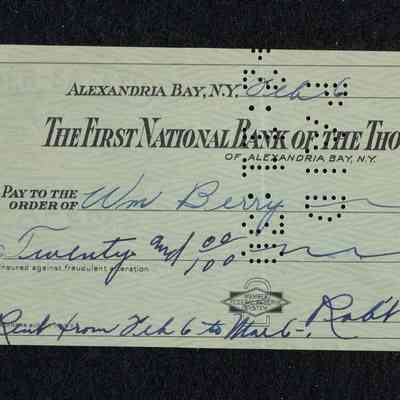 ALEXANDRIA BAY, N.Y. Feb 6
THE FIRST NATIONAL BANK OF THE THO
OF ALEXANDRIA BAY, N.Y.
PAY TO THE
ORDER OF Wm Berry
Twenty and 00/100
insured against fraudulent alteration
MEMBER
FEDERAL RESERVE
SYSTEM
Rent from Feb 6 to Mar 6 - Rob't